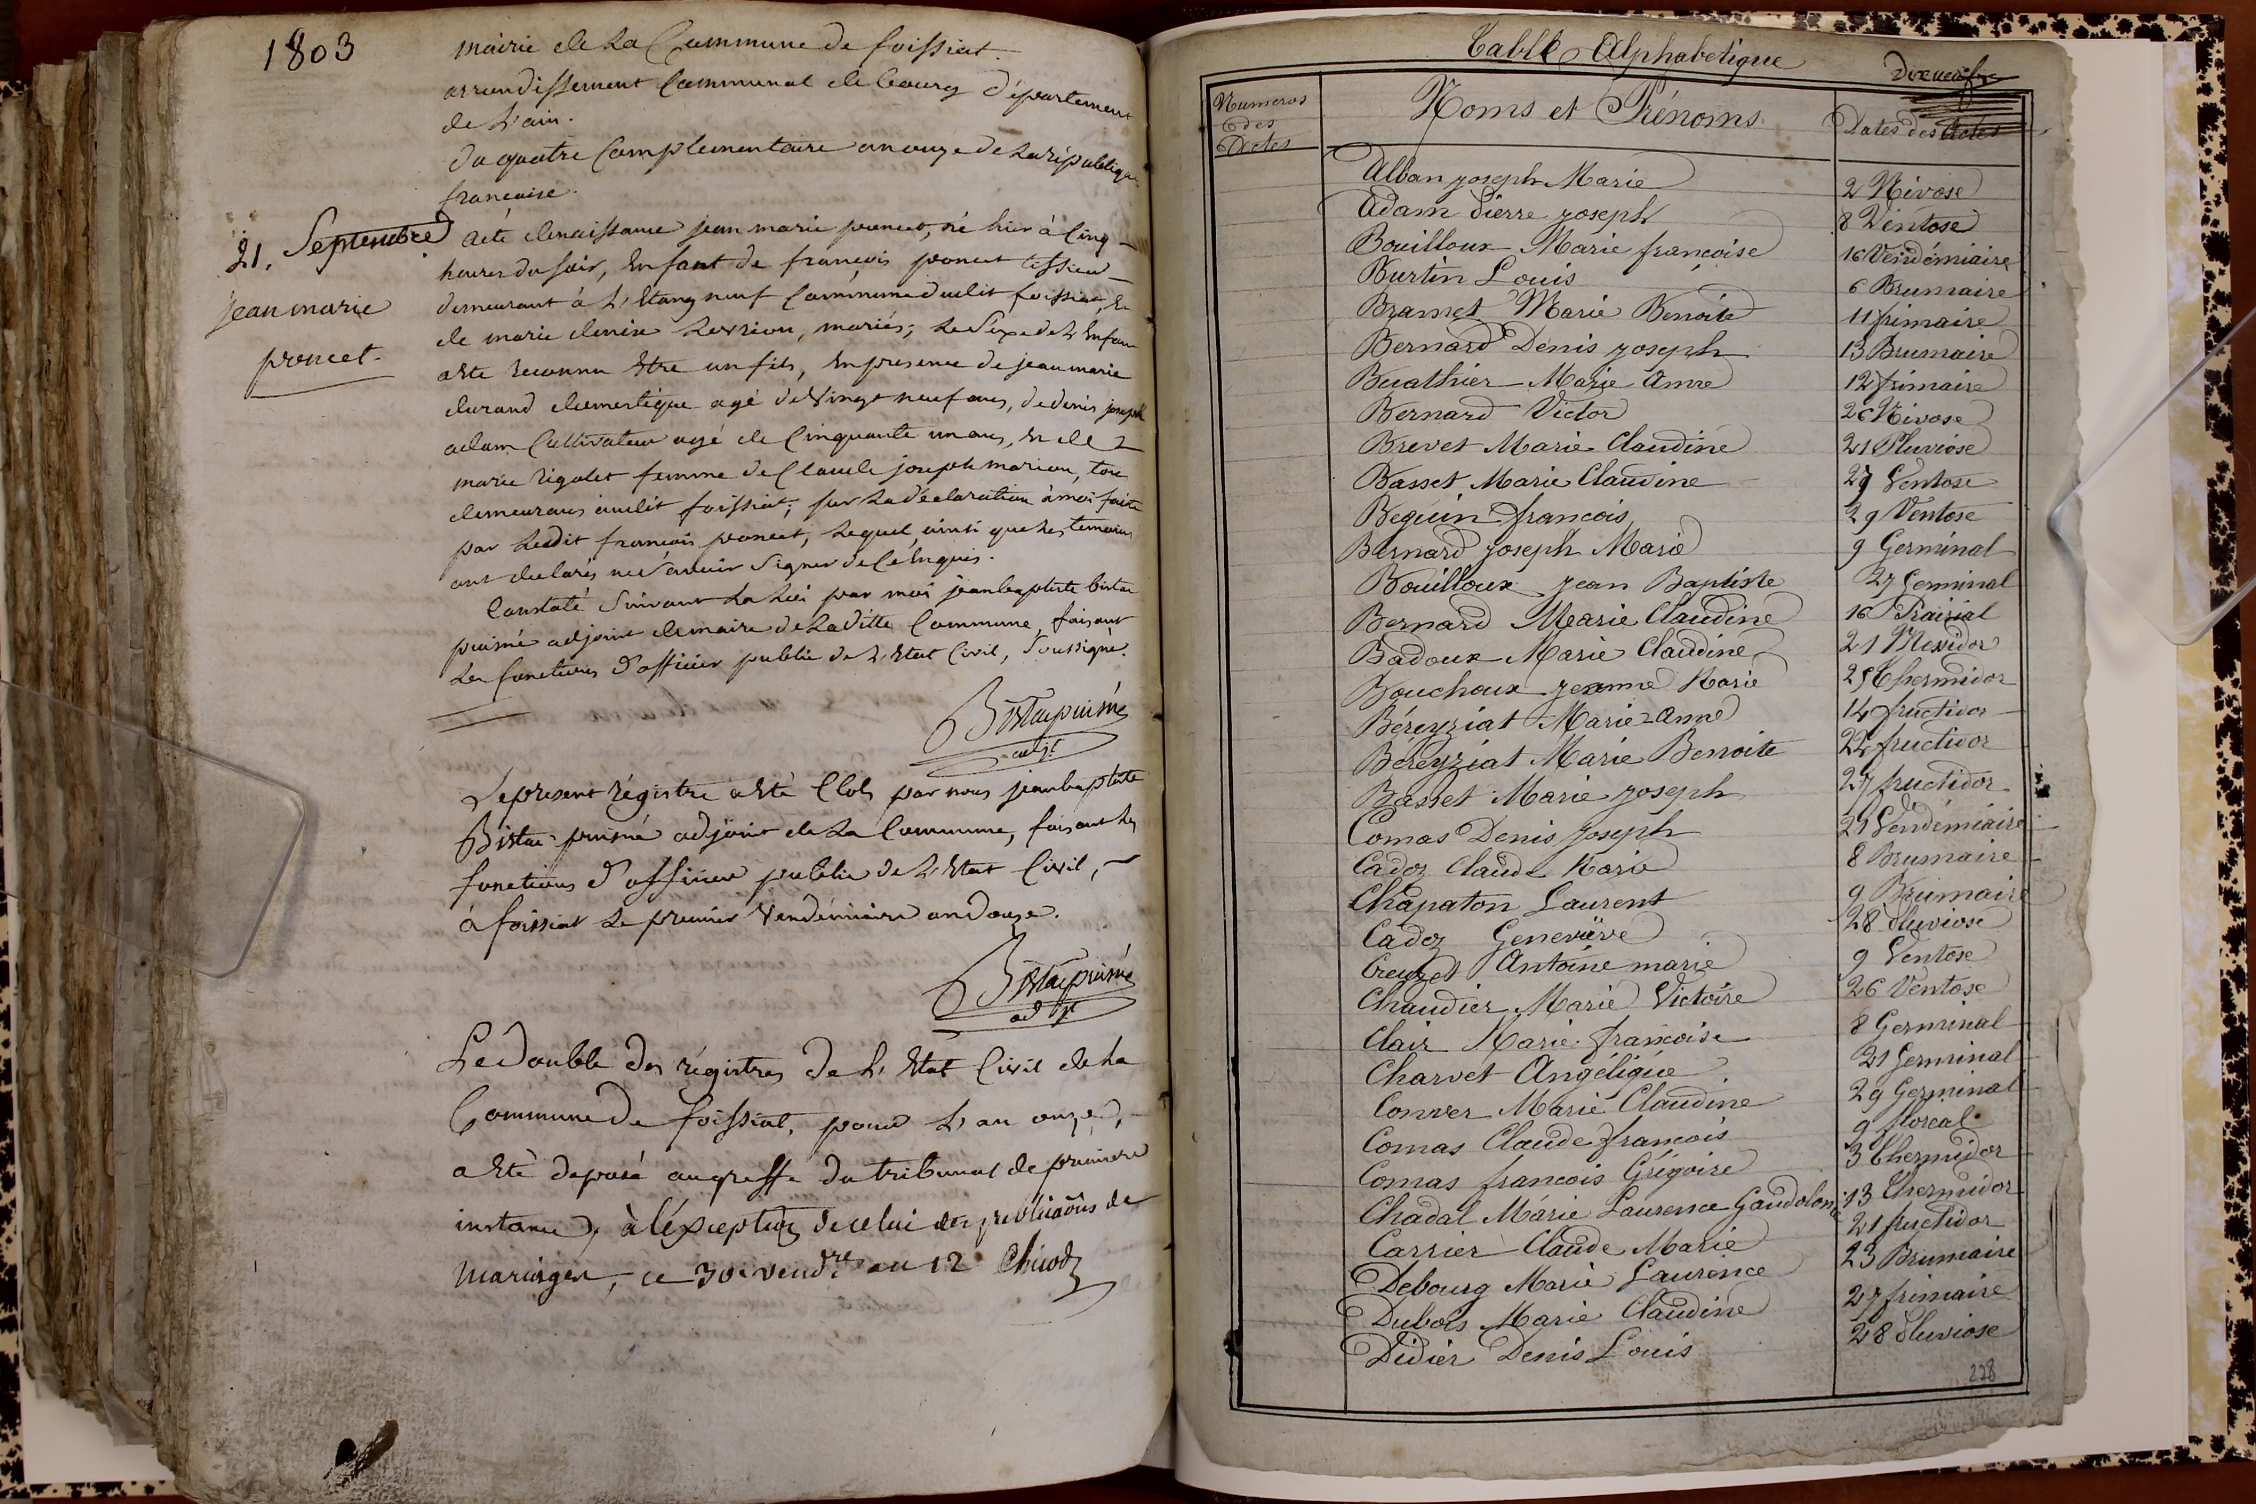 1803
mairie de la Commune de foissiat
arrondissement Communal de bourg département
de L'ain.
du quatre Complementaire an onze de la république
francaise.
21. Septembre
jean marie
poncet
acte denaissance jean marie poncet, né hier à Cinq
heures du soir, Enfant de françois poncet tissieu
demeurant à L'Etang neuf Commune dudit foissiat, Et
de marie denise, mariés; Le Sexe de L'Enfant
a Eté reconnu Etre un fils, En presence de jean marie
durand domestique agé de Vingt neuf ans, de denis joseph
adam Cultivateur agé de Cinquante un ans, Et de
marie rigolet femme de Claude joseph marion, tous
demeurans audit foissiat; sur La déclaration à moi faite
par Ledit francois poncet, Lequel ainsi que Les temoins
ont declarés ne Savoir Signer de Ce Enquis.
Constaté Suivant La Loi par moi jean baptiste
puiné adjoint demaire de Laditte Commune, faisant
Les fonctions d'officier public de L'Etat Civil, Soussigné.
adjt
Le present régistre a Eté Clos par nous jean baptiste
puiné adjoint de La Commune, faisant Les
fonctions d'officier public de L'Etat Civil,
à foissiat Le premier Vendémiaire an douze.
adjt
Le double des régistres de L'Etat Civil de La
Commune de foissiat, pour L'an onze,
a Eté deposé au greffe du tribunal de premiere
instance, à l'éxception de celui des publicaõns de
mariages, ce 30 vendre an 12
Table Alphabetique
Numeros
des
Actes
Noms et Prénoms
Dates des Actes
Alban joseph Marie 2 Nivose
Adam Pierre joseph 8 Ventose
Bouilloux Marie francoise 16 Vendémiaire
Burtin Louis 6 Brumaire
Bramet Marie Benoite 11 frimaire
Bernard Denis joseph 13 Brumaire
Buathier Marie Anne 12 frimaire
Bernard Victor 26 Nivose
Brevet Marie Claudine 21 Pluviose
Basset Marie Claudine 27 Ventose
Beguin francois 29 Ventose
Bernard joseph Marie 9 Germinal
Bouilloux jean Baptiste 27 Germinal
Bernard Marie Claudine 16 Prairial
Badoux Marie Claudine 21 Messidor
Bouchoux jeanne Marie 25 Thermidor
Béreyziat Marie Anne 14 fructidor
Béreyziat Marie Benoite 22 fructidor
Basset Marie joseph 27 fructidor
Comas Denis joseph 21 Vendémiaire
Cadoz Claude Marie 8 Brumaire
Chapaton Laurent 9 Brumaire
Cadoz Genevieve 28 Pluviose
Creuzet Antoine marie 9 Ventose
Chaudier Marie Victoire 26 Ventose
Clair Marie francoise 8 Germinal
Charvet Angélique 21 Germinal
Conver Marie Claudine 29 Germinal
Comas Claude francois 9 floreal
Comas francois Grégoire 3 Thermidor
Chadal Marie Laurence 13 Thermidor
Carrier Claude Marie 21 fructidor
Debourg Marie Laurence 23 Brumaire
Dubois Marie Claudine 27 frimaire
Didier Denis Louis 28 Pluviose
228